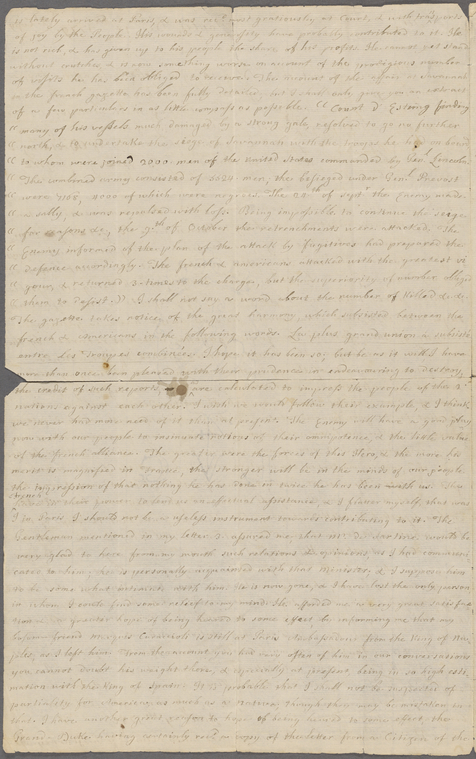 is lately arrived at Paris, & was rec'd most graciously at Court, & with transports
of joy by the People. His wounds & generosity have probably contributed to it. He
is not rich, & has given up to his people the share of his profits. He cannot yet stand
without crutches, & is now something worse on account of the prodigious number
of visits he has been obliged to receive. The account of the affair at Savannah
in the french gazette has been fully detailed, but I shall only give you an extract
of a few particulars in as little compass as possible. "Count d'Estaing finding
"many of his vessels much damaged by a strong gale, resolved to go no further
"north, & undertake the siege of Savannah with the troops he had on board
"to whom were joined 2000 men of the United States commanded by Gen. Lincoln.
"The combined army consisted of 5020 men, the besieged under Gen. Prevost
"were 7165, 4000 of which were negroes. The of Sept. the Enemy made
"a sally, & was repulsed with loss. Being impossible to continue the siege
"for reasons &c, the 9th of October the retrenchments were attacked. The
"Enemy informed of the plan of the attack by fugitives had prepared the
"defence accordingly. The french & americans attacked with the greatest vi
"gour, & returned 3 times to the charge, but the superiority of number obliged
"them to desist." I shall not say a word about the number of killed &c &c.
The gazette takes notice of the great harmony, which subsisted between the
french & americans in the following words. La plus grande union a subsisté
entre les Troupes combinées. I hope it has been so; but be as it will I have
more than once been pleased with their prudence in endeavouring to destroy
the credit of such reports, are calculated to impress the people of the 2
nations against each other. I wish we would follow their example, & I think
we never had more need of it than at present. The Enemy will have a good
now with our people to insinuate notions of their importance, & the little value
of the french alliance. The greater were the forces of this Hero, & the more his
merit is magnified in France, the stronger will be in the minds of our people
the impression of that nothing he has done in twice he has been with us. The
to lend us an effectual assistance, & I flatter myself, that was
I in Paris I should not be a useless instrument towards contributing to it. The
Gentleman mentioned in my letter assured me, that Mr. de Sartine would be
very glad to hear from my mouth such relations & opinions, as I had communi
cated to him. He is personally acquainted with that Minister, & I suppose him
to be some what intimate with him. He is now gone, & I have lost the only person
in whom I could find some relief to my mind. He afforded me a very great satisfac
tion & a greater hope of being heard to some effect, by informing me that my
before friend Marquis Caraccioli is still at Paris Ambassadour from the King of Na
ples, as I left him. From the account you had very often of him in our conversations
you cannot doubt his weight there, & especially at present being in so high esti
mation with the King of Spain. It is probable that I shall not be suspected of
partiality for Americans as much as a native, though there may be mistaken in
that. I have another great reason to hope of being heard to some effect, the
Grand Duke having certainly rec'd a copy of the letter from a Citizen of the